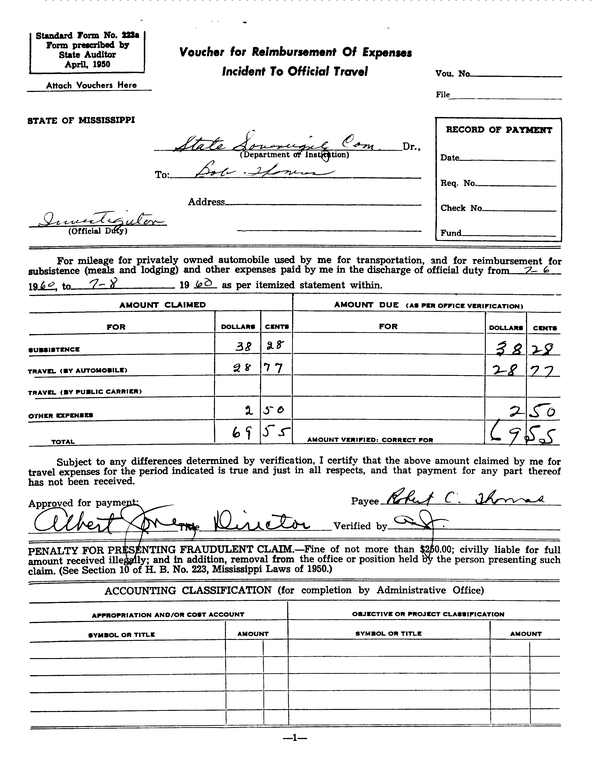 Standard Form No. 223a
Form prescribed by
State Auditor
April, 1950
Attach Vouchers Here
Voucher for Reimbursement Of Expenses
Incident To Official Travel
Vou. No.
File
STATE OF MISSISSIPPI
State Sovereignty Com. Dr.,
(Department or Institution)
To: Bob Thomas
Address
Investigator
(Official Duty)
RECORD OF PAYMENT
Date
Req. No.
Check No.
Fund
For mileage for privately owned automobile used by me for transportation, and for reimbursement for
subsistence (meals and lodging) and other expenses paid by me in the discharge of official duty from 7-6
1960, to 7-8 1960 as per itemized statement within.
AMOUNT CLAIMED AMOUNT DUE (AS PER OFFICE VERIFICATION)
FOR DOLLARS CENTS FOR DOLLARS CENTS
SUBSISTENCE 38 28 38 28
TRAVEL (BY AUTOMOBILE) 28 77 28 77
TRAVEL (BY PUBLIC CARRIER)
OTHER EXPENSES 2 50 2 50
TOTAL 69 55 AMOUNT VERIFIED: CORRECT FOR 69 55
Subject to any differences determined by verification, I certify that the above amount claimed by me for
travel expenses for the period indicated is true and just in all respects, and that payment for any part thereof
has not been received.
Approved for payment: Payee Robert C. Thomas
Albert Jones Title Director Verified by
PENALTY FOR PRESENTING FRAUDULENT CLAIM.—Fine of not more than $250.00; civilly liable for full
amount received illegally; and in addition, removal from the office or position held by the person presenting such
claim. (See Section 10 of H. B. No. 223, Mississippi Laws of 1950.)
ACCOUNTING CLASSIFICATION (for completion by Administrative Office)
APPROPRIATION AND/OR COST ACCOUNT OBJECTIVE OR PROJECT CLASSIFICATION
SYMBOL OR TITLE AMOUNT SYMBOL OR TITLE AMOUNT
—1—